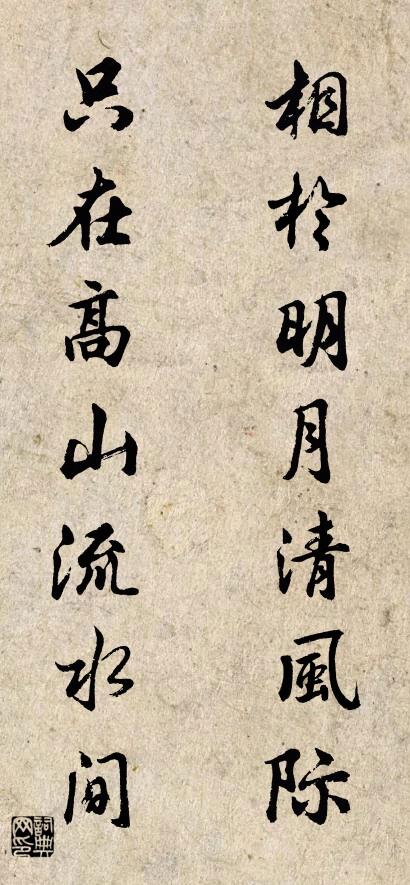 相於明月清風际
只在髙山流水间
詞典网印